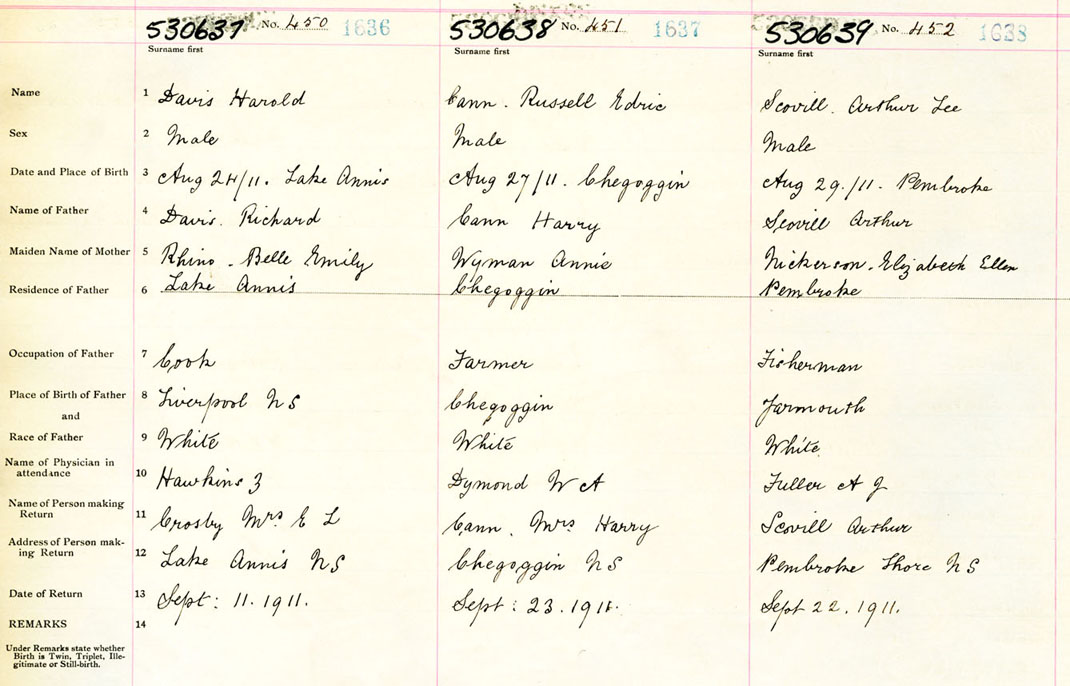 530637 No. 450 1636 530638 No. 451 1637 530639 No. 452 1638
Surname first Surname first Surname first
Name 1 Davis Harold Cann. Russell Edric Scovill. Arthur Lee
Sex 2 Male Male Male
Date and Place of Birth 3 Aug 24/11. Lake Annis Aug 27/11. Chegoggin Aug 29./11. Pembroke
Name of Father 4 Davis. Richard Cann Harry Scovill Arthur
Maiden Name of Mother 5 Rhino. Belle Emily Wyman Annie Nickerson. Elizabeth Ellen
Residence of Father 6 Lake Annis Chegoggin Pembroke
Occupation of Father 7 Cook Farmer Fisherman
Place of Birth of Father 8 Liverpool NS Chegoggin Yarmouth
and
Race of Father 9 White White White
Name of Physician in
attendance 10 Hawkins Dymond W A Fuller A J
Name of Person making
Return 11 Crosby Mrs E L Cann. Mrs Harry Scovill Arthur
Address of Person mak-
ing Return 12 Lake Annis NS Chegoggin NS Pembroke Shore NS
Date of Return 13 Sept: 11. 1911. Sept: 23. 1911. Sept 22. 1911.
REMARKS 14
Under Remarks state whether
Birth is Twin, Triplet, Ille-
gitimate or Still-birth.